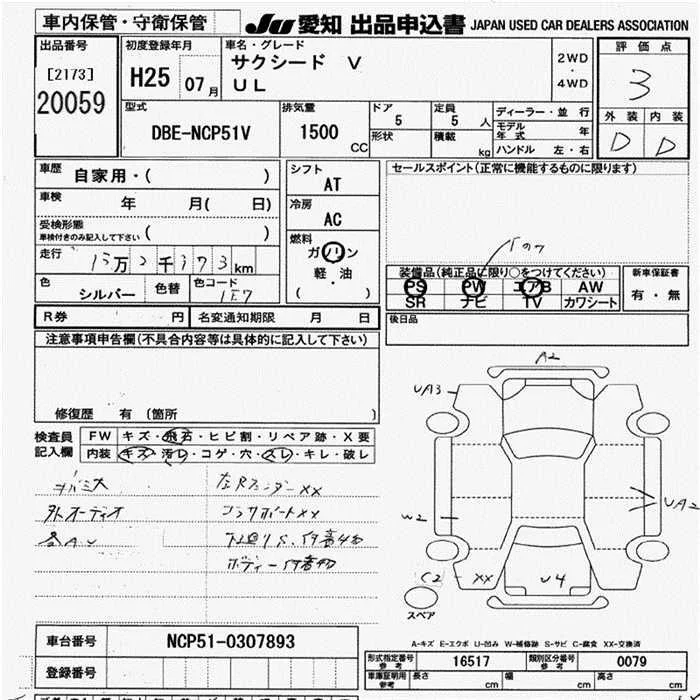 車内保管・守衛保管
JU 愛知 出品申込書 JAPAN USED CAR DEALERS ASSOCIATION
出品番号
[2173]
20059
初度登録年月
H25 07月
車名・グレード
サクシード V
UL
2WD
・
4WD
評価点
3
外装 内装
D D
型式
DBE-NCP51V
排気量
1500
CC
ドア
5
形状
定員
5 人
積載
kg
ディーラー・並 行
モデル年式 年
ハンドル 左・右
車歴
自家用・( )
車検
年 月( 日)
受検形態
車検付きのみ記入して下さい ( )
走行
万 千 km
色
シルバー
色替
色コード
1E7
シフト
AT
冷房
AC
燃料
ガソリン
軽・油
( )
セールスポイント(正常に機能するものに限ります)
装備品(純正品に限り○をつけてください)
PS PW エアB AW
SR ナビ TV カワシート
新車保証書
有・無
後日品
R券 円
名変通知期限 月 日
注意事項申告欄(不具合内容等は具体的に記入して下さい)
修復歴 有 〔箇所 〕
検査員
記入欄
FW キズ・飛石・ヒビ割・リペア跡・X要
内装 キズ・汚レ・コゲ・穴・スレ・キレ・破レ
外オーディオ
A2
UA3
UA2
W2
C2 - XX
U4
スペア
車台番号 NCP51-0307893
登録番号
A-キズ E-エクボ U-凹み W-補修跡 S-サビ C-腐食 XX-交換済
形式指定番号
参考
16517
類別区分番号
参考
0079
車庫証明用
参考
長さ cm
幅 cm
高さ cm